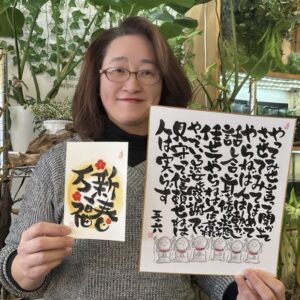 新春
万福
やってみせ言って聞かせて
させてみせほめて
やらねば人は動かじ
話し合い耳を傾け承認し
任せてやらねば人は育たず
やっている姿を感謝で
見守って信頼せねば
人は実らず
五十六